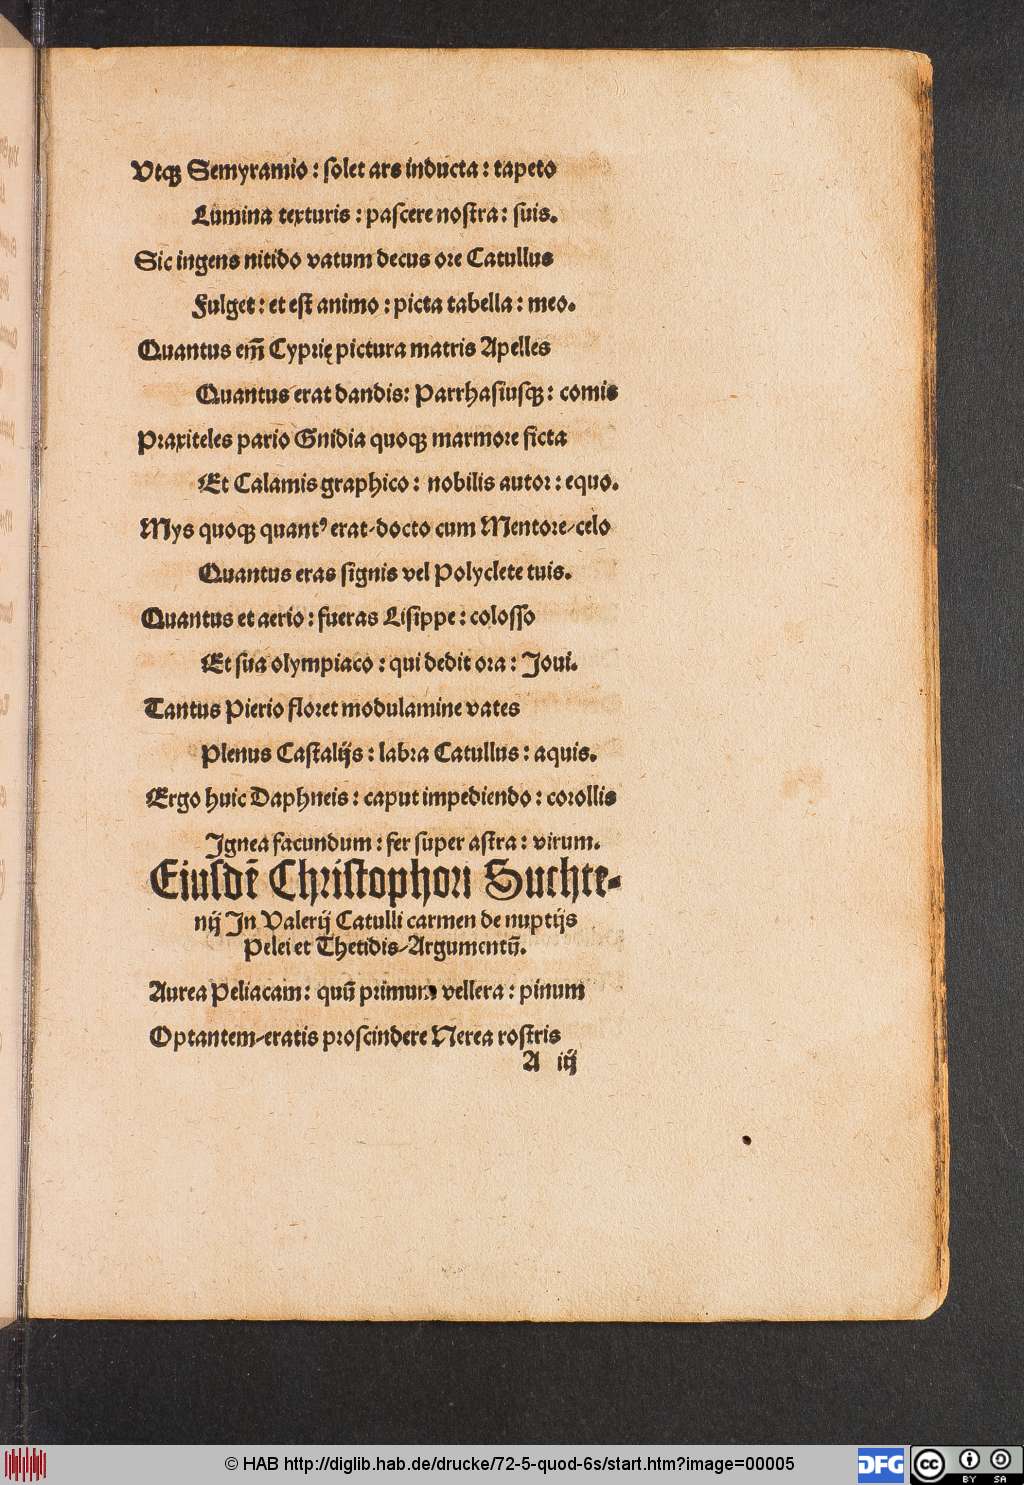 Vtqꝫ Semyramio : solet ars inducta : tapeto
Lumina texturis : pascere nostra : suis.
Sic ingens nitido vatum decus ore Catullus
Fulget : et est animo : picta tabella : meo.
Quantus em̄ Cyprię pictura matris Apelles
Quantus erat dandis: Parrhasiusqꝫ : comis
Praxiteles pario Gnidia quoqꝫ marmore ficta
Et Calamis graphico : nobilis autor : equo.
Mys quoqꝫ quantꝰ erat/docto cum Mentore/celo
Quantus eras signis vel Polyclete tuis.
Quantus et aerio : fueras Lisippe : colosso
Et sua olympiaco : qui dedit ora : Joui.
Tantus Pierio floret modulamine vates
Plenus Castalijs : labra Catullus : aquis.
Ergo huic Daphneis : caput impediendo : corollis
Ignea facundum : fer super astra : virum.
Eiusdē Christophori Suchte-
nij In Valerij Catulli carmen de nuptijs
Pelei et Thetidis/Argumentū.
Aurea Peliacam : quū primum vellera : pinum
Optantem/eratis proscindere Nerea rostris
A iij
© HAB http://diglib.hab.de/drucke/72-5-quod-6s/start.htm?image=00005
DFG
cc
BY SA